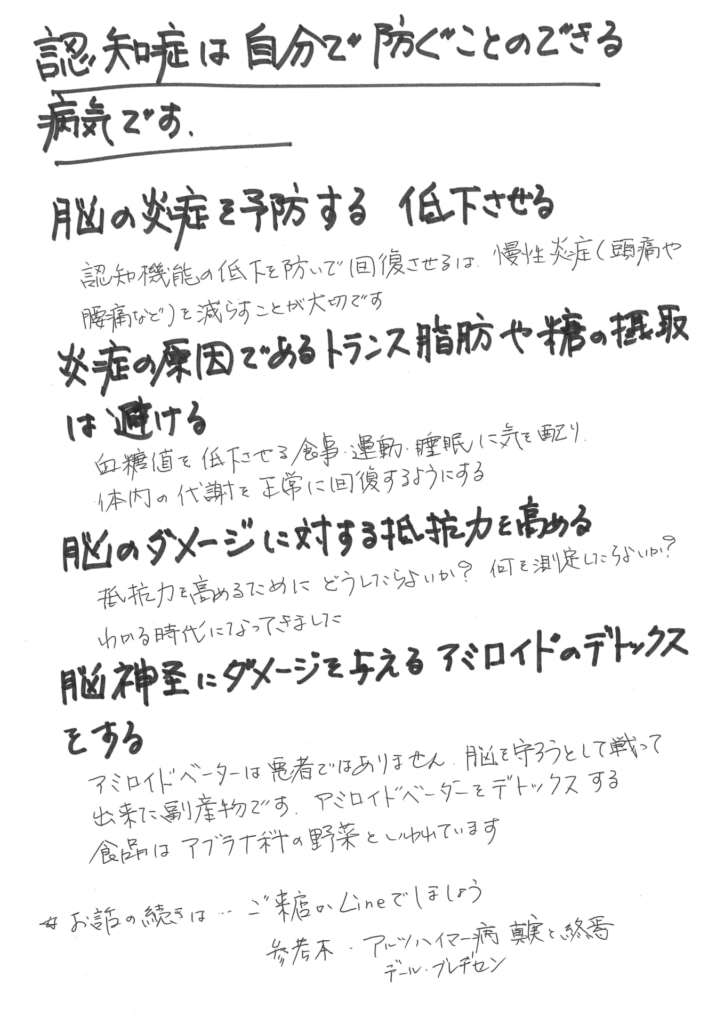 認知症は自分で防ぐことのできる
病気です.
脳の炎症を予防する 低下させる
認知機能の低下を防いで回復させるは、慢性炎症(頭痛や
腰痛など)を減らすことが大切です
炎症の原因であるトランス脂肪や糖の摂取
は避ける
血糖値を低下させる食事・運動・睡眠に気を配り、
体内の代謝を正常に回復するようにする
脳のダメージに対する抵抗力を高める
抵抗力を高めるためにどうしたらよいか? 何を測定したらよいか?
わかる時代になってきました
脳神経にダメージを与えるアミロイドのデトックス
をする
アミロイドベーターは悪者ではありません、脳を守ろうとして戦って
出来た副産物です、アミロイドベーターをデトックスする
食品はアブラナ科の野菜といわれています
☆お話の続きは… ご来店かLineでしましょう
参考本・アルツハイマー病 真実と終焉
デール・ブレデセン